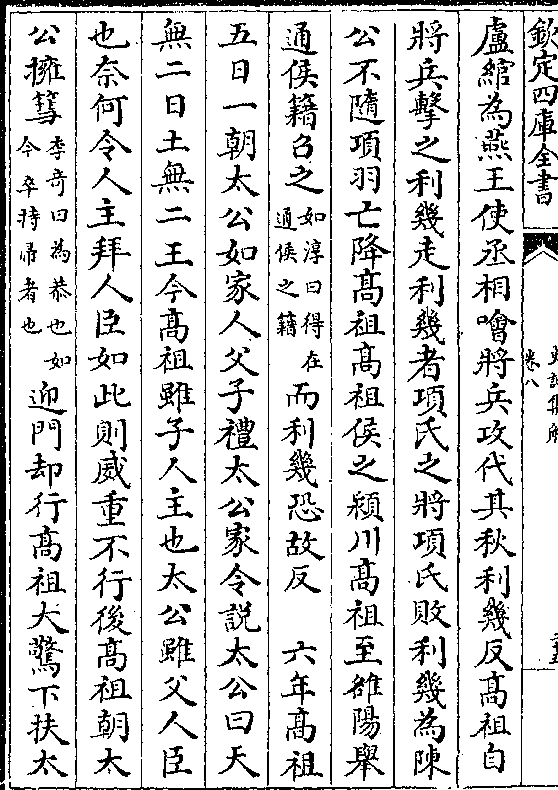 欽定四庫全書
卷八
盧綰為燕王使丞相噲將兵攻代其秋利幾反髙祖自
將兵擊之利幾走利幾者項氏之將項氏敗利幾為陳
公不隨項羽亡降髙祖髙祖侯之潁川髙祖至雒陽舉
通侯籍召之如淳曰得在通侯之籍而利幾恐故反 六年髙祖
五日一朝太公如家人父子禮太公家令説太公曰天
無二日土無二王今髙祖雖子人主也太公雖父人臣
也奈何令人主拜人臣如此則威重不行後髙祖朝太
公擁篲李竒曰為恭也如今卒持帚者也迎門却行髙祖大驚下扶太